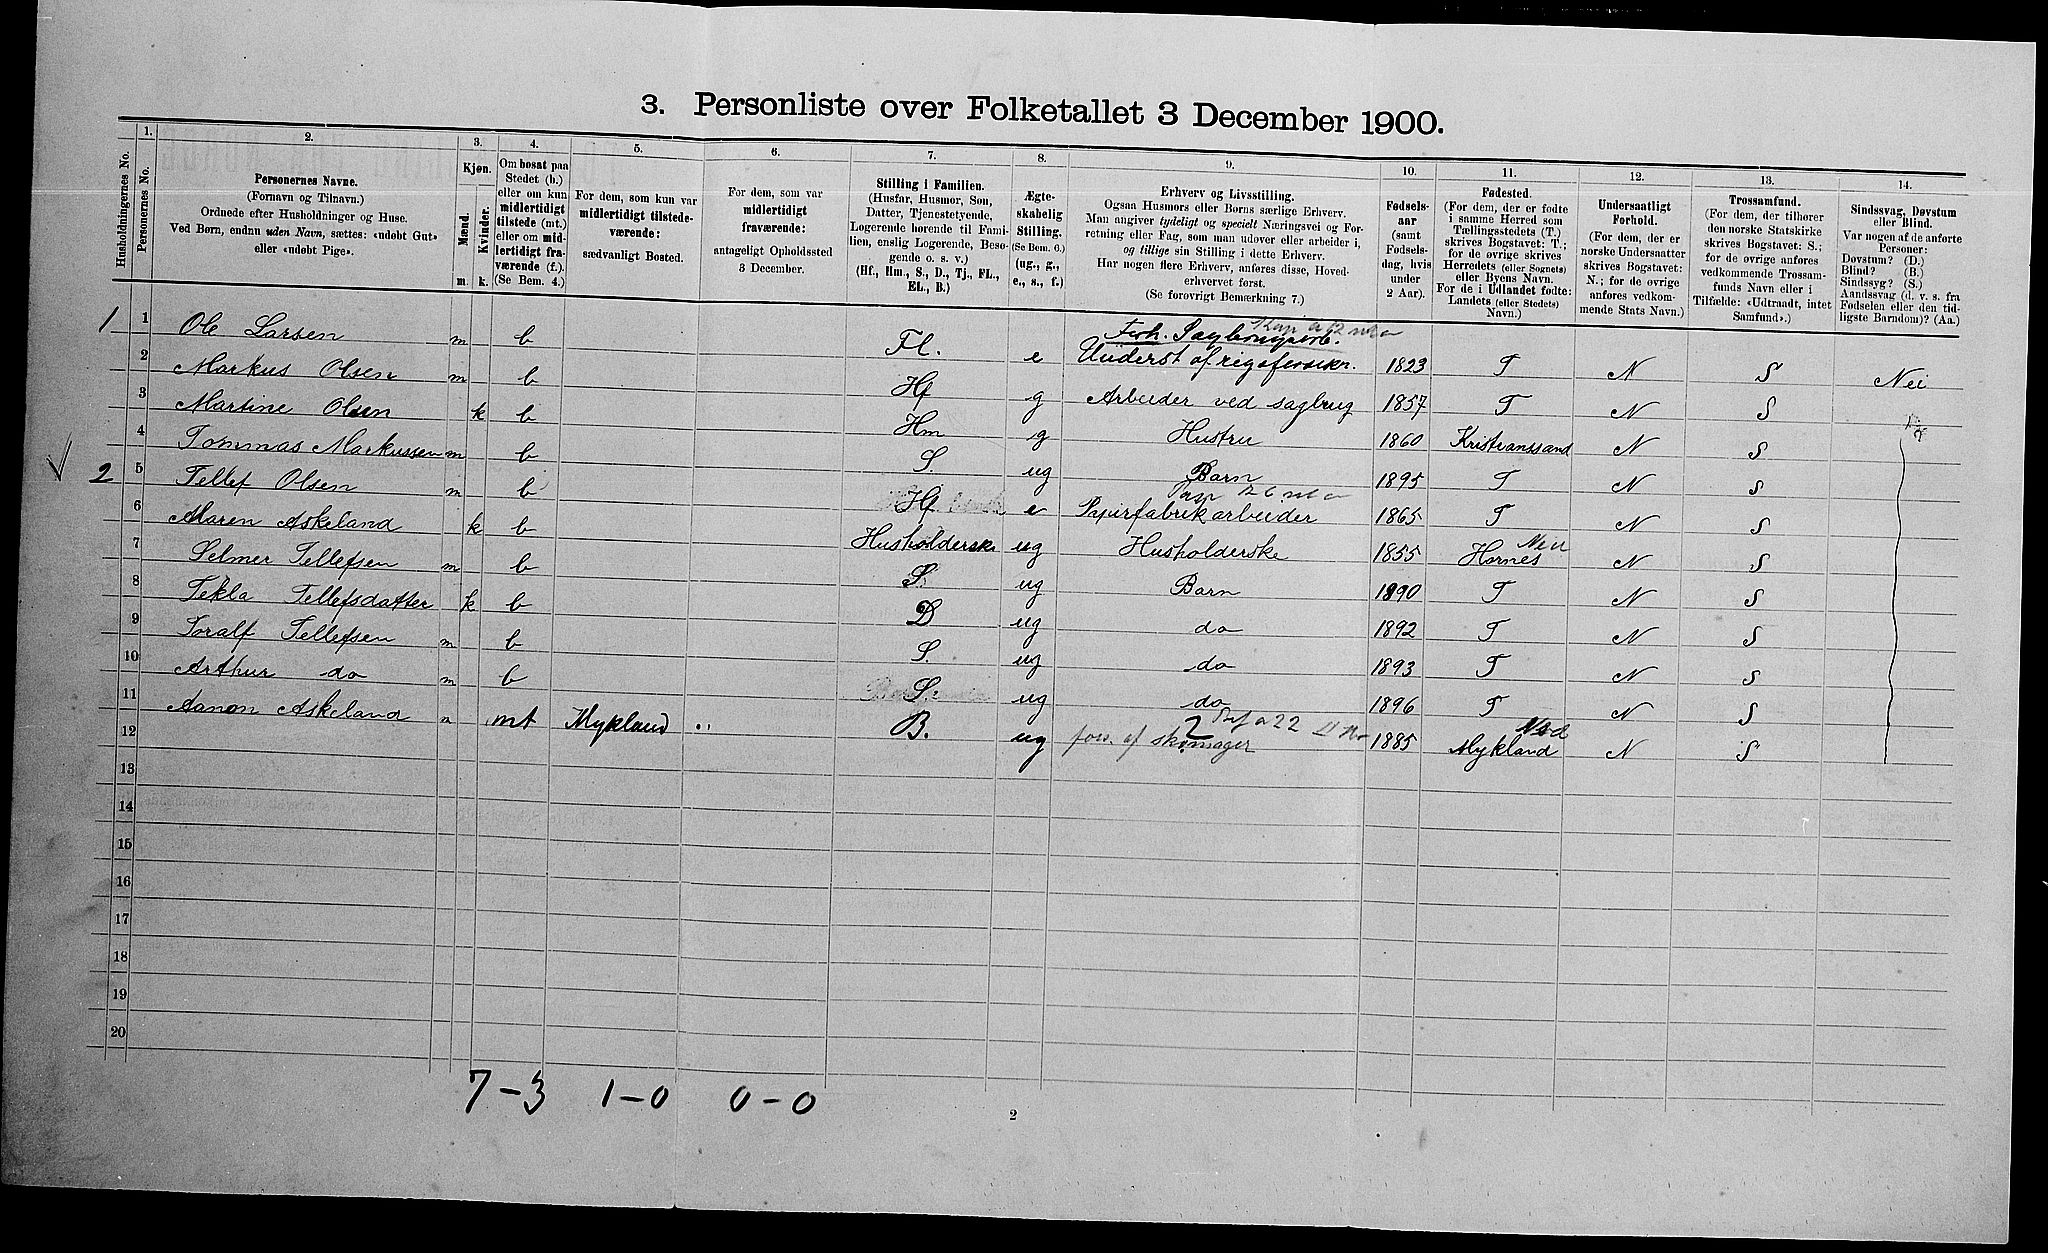 3. Personliste over Folketallet 3 December 1900.
Husholdningernes No.
1. Personernes No.
2. Personernes Navne.
(Fornavn og Tilnavn.)
Ordnede efter Husholdninger og Huse.
Ved Børn, endnu uden Navn, sættes: «udøbt Gut»
eller «udøbt Pige».
3. Kjøn.
Mænd. Kvinder.
m. k.
4. Om bosat paa
Stedet (b.)
eller om kun
midlertidigt
tilstede (mt.)
eller om mid-
lertidigt fra-
værende (f.).
(Se Bem. 4.)
5. For dem, som kun var
midlertidigt tilstede-
værende:
sædvanligt Bosted.
6. For dem, som var
midlertidigt
fraværende:
antageligt Opholdssted
3 December.
7. Stilling i Familien.
(Husfar, Husmor, Søn,
Datter, Tjenestetyende,
Logerende hørende til Fami-
lien, enslig Logerende, Besø-
gende o. s. v.)
(Hf., Hm., S., D., Tj., FL.,
EL., B.)
8. Ægte-
skabelig
Stilling.
(Se Bem. 6.)
(ug., g.,
e., s., f.)
9. Erhverv og Livsstilling.
Ogsaa Husmors eller Børns særlige Erhverv.
Man angiver tydeligt og specielt Næringsvei og For-
retning eller Fag, som man udøver eller arbeider i,
og tillige sin Stilling i dette Erhverv.
Har nogen flere Erhverv, anføres disse, Hoved-
erhvervet først.
(Se forøvrigt Bemærkning 7.)
10. Fødsels-
aar
(samt
Fødsels-
dag, hvis
under
2 Aar).
11. Fødested.
(For dem, der er fødte
i samme Herred som
Tællingsstedets (T.)
skrives Bogstavet: T.;
for de øvrige skrives
Herredets (eller Sognets)
eller Byens Navn.
For de i Udlandet fødte:
Landets (eller Stedets)
Navn.)
12. Undersaatligt
Forhold.
(For dem, der er
norske Undersaatter
skrives Bogstavet:
N.; for de øvrige
anføres vedkom-
mende Stats Navn.)
13. Trossamfund.
(For dem, der tilhører
den norske Statskirke
skrives Bogstavet: S.;
for de øvrige anføres
vedkommende Trossam-
funds Navn eller i
Tilfælde: «Udtraadt, intet
Samfund».)
14. Sindssvag, Døvstum
eller Blind.
Var nogen af de anførte
Personer:
Døvstum? (D.)
Blind? (B.)
Sindssyg? (S.)
Aandssvag (d. v. s. fra
Fødselen eller den tid-
ligste Barndom)? (Aa.)
1 1 Ole Larsen m b Fl. e Forh. Sagbrugsarb. Underst af 1823 T N S Nei
2 Markus Olsen m b Hf g Arbeider ved sagbrug 1857 T N S
3 Martine Olsen k b Hm g Hustru 1860 Kristianssand N S
4 Tommas Markussen m b S. ug Barn 1895 T N S
2 5 Tellef Olsen m b Hf e Papirfabrikarbeider 1865 T N S
6 Maren Askeland k b Husholderske ug Husholderske 1855 Hornes N S
7 Selmer Tellefsen m b S. ug Barn 1890 T N S
8 Tekla Tellefsdatter k b D ug do 1892 T N S
9 Toralf Tellefsen m b S. ug do 1893 T N S
10 Arthur do m b S. ug do 1896 T N S
11 Aanon Askeland mt Mykland B. ug skomager 1885 Mykland N S
12
13
14
15
16
17
18
19
20
7-3 1-0 0-0
2